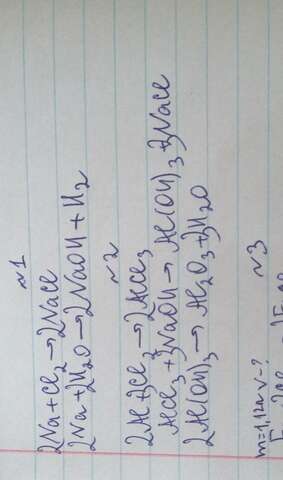 №1
2Na+Cl₂→2NaCl
2Na+2H₂O→2NaOH+H₂
№2
2Al+3Cl₂→2AlCl₃
AlCl₃+3NaOH→Al(OH)₃+3NaCl
2Al(OH)₃→Al₂O₃+3H₂O
№3
m=1,12г V-?